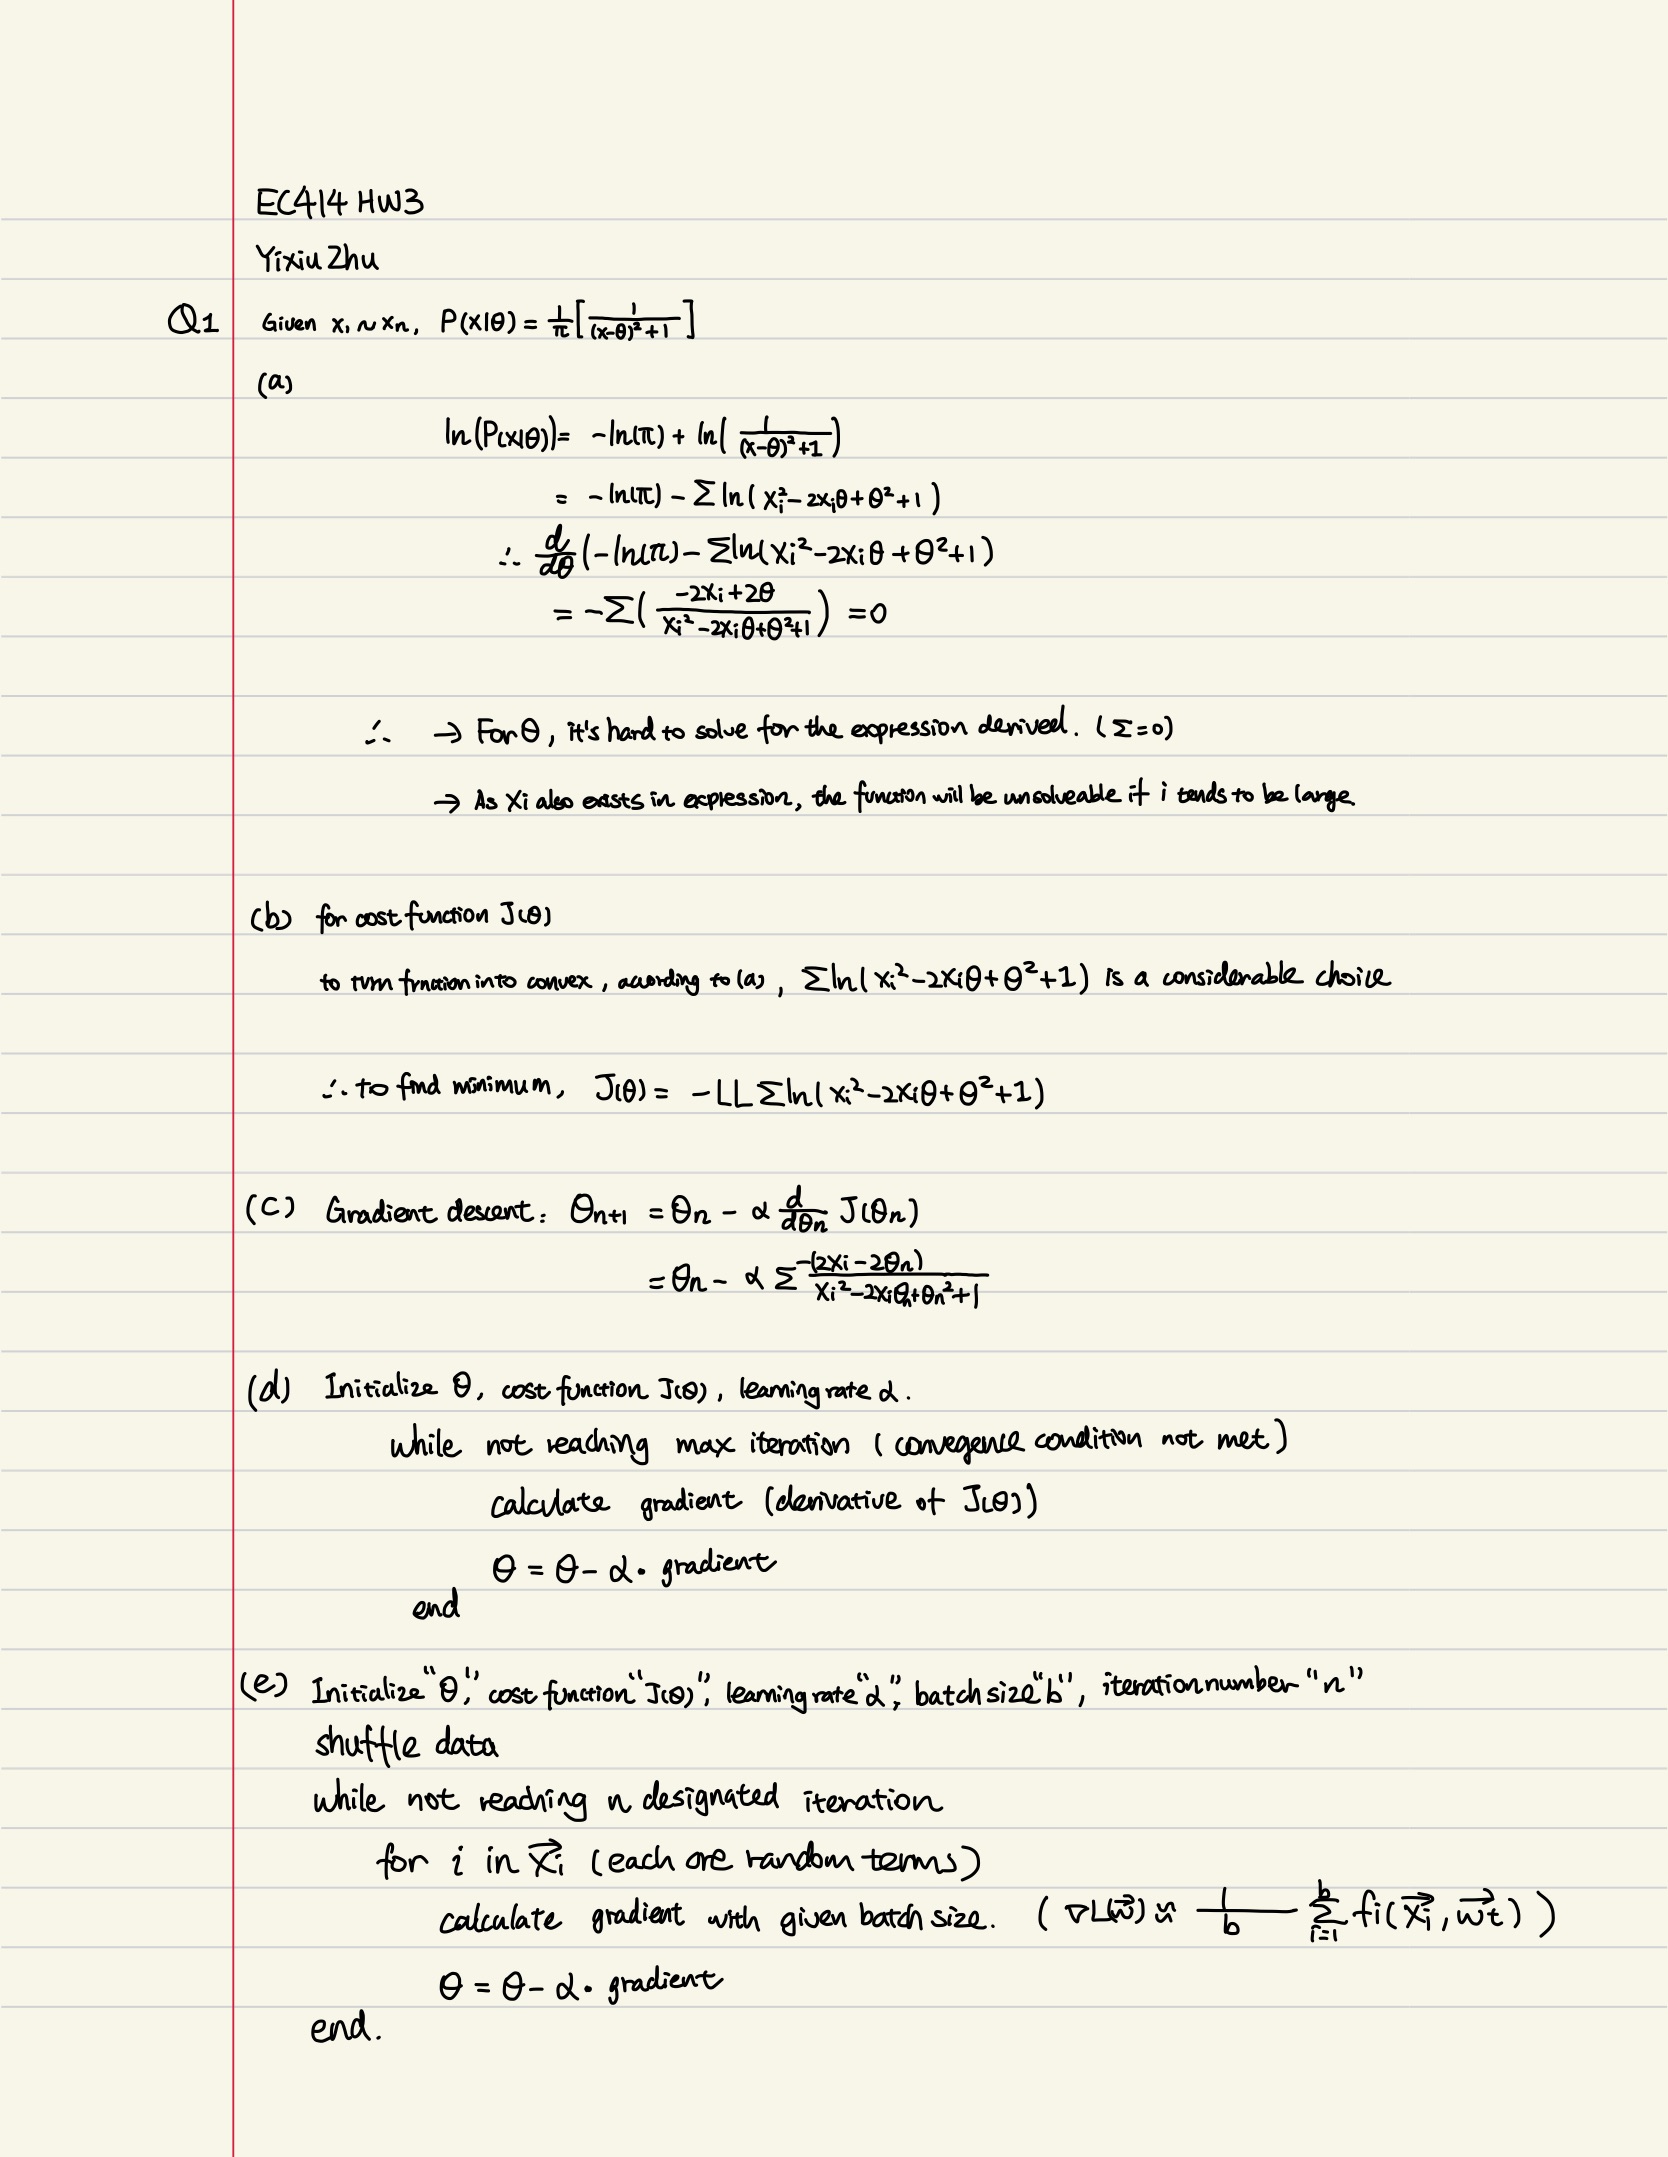 EC414 HW3
Yixiu Zhu
Q1 Given x₁ ~ xₙ, P(x|θ) = 1/π [ 1/((x-θ)²+1) ]
(a)
ln(P(x|θ)) = -ln(π) + ln( 1/((x-θ)²+1) )
= -ln(π) - Σ ln( xᵢ² - 2xᵢθ + θ² + 1 )
∴ d/dθ (-ln(π) - Σ ln( xᵢ² - 2xᵢθ + θ² + 1 )
= -Σ( (-2xᵢ + 2θ)/(xᵢ² - 2xᵢθ + θ² + 1) ) = 0
∴ → For θ, it's hard to solve for the expression derived. (Σ=0)
→ As xᵢ also exists in expression, the function will be unsolveable if i tends to be large.
(b) for cost function J(θ)
to turn function into convex, according to (a), Σ ln( xᵢ² - 2xᵢθ + θ² + 1 ) is a considerable choice
∴ to find minimum, J(θ) = -LL Σ ln( xᵢ² - 2xᵢθ + θ² + 1 )
(c) Gradient descent: θₙ₊₁ = θₙ - α d/dθₙ J(θₙ)
= θₙ - α Σ -(2xᵢ - 2θₙ)/(xᵢ² - 2xᵢθₙ + θₙ² + 1)
(d) Initialize θ, cost function J(θ), learning rate α.
while not reaching max iteration (convegence condition not met)
calculate gradient (derivative of J(θ))
θ = θ - α · gradient
end
(e) Initialize "θ", cost function "J(θ)", learning rate "α", batch size "b", iteration number "n"
shuffle data
while not reaching n designated iteration
for i in x⃗ᵢ (each are random terms)
calculate gradient with given batch size. ( ∇L(w⃗) ≈ 1/b Σᵢ₌₁ᵇ fi(x⃗ᵢ, w⃗t) )
θ = θ - α · gradient
end.